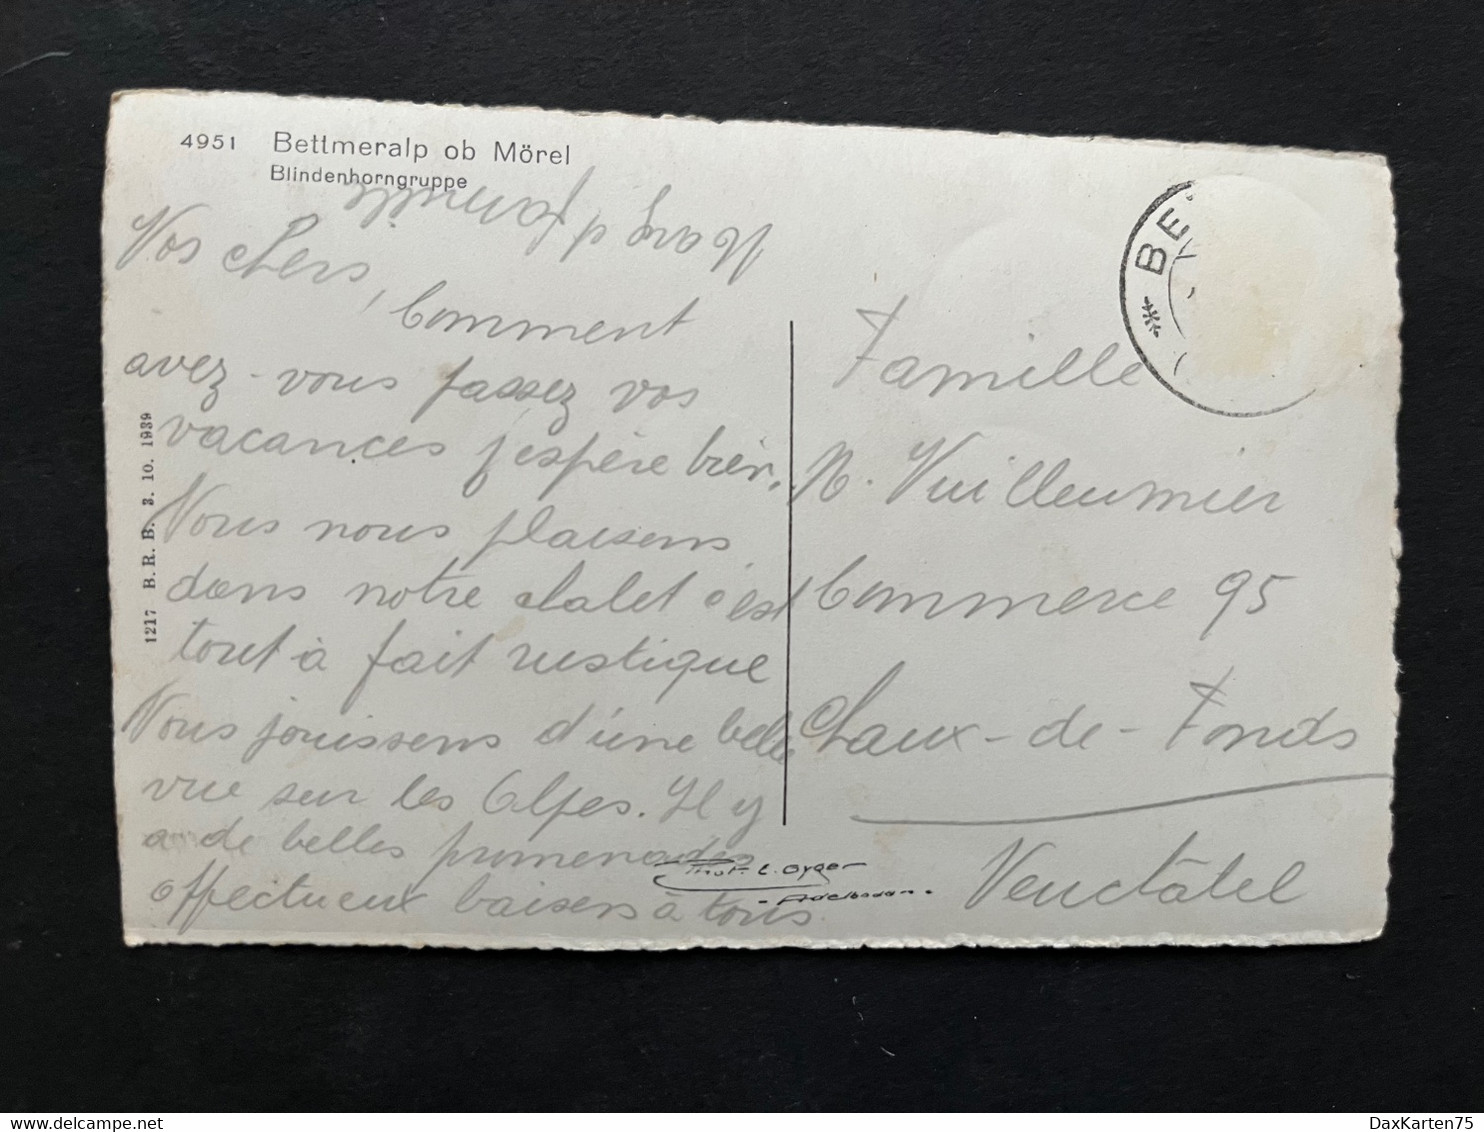 4951 Bettmeralp ob Mörel
Blindenhorngruppe
Vos chers,
Comment
avez-vous passez vos
vacances j'espère bien.
Nous nous plaisons
dans notre chalet c'est
tout à fait rustique
Nous jouissons d'une belle
vue sur les Alpes. Il y
a de belles promenades
affectueux baisers à tous
famille
1217 B. R. B. 3. 10. 1939
BE
Famille
N. Vuilleumier
Commerce 95
Chaux-de-Fonds
Neuchâtel
Phot. E. Gyger
- Adelboden -
DaxKarten75